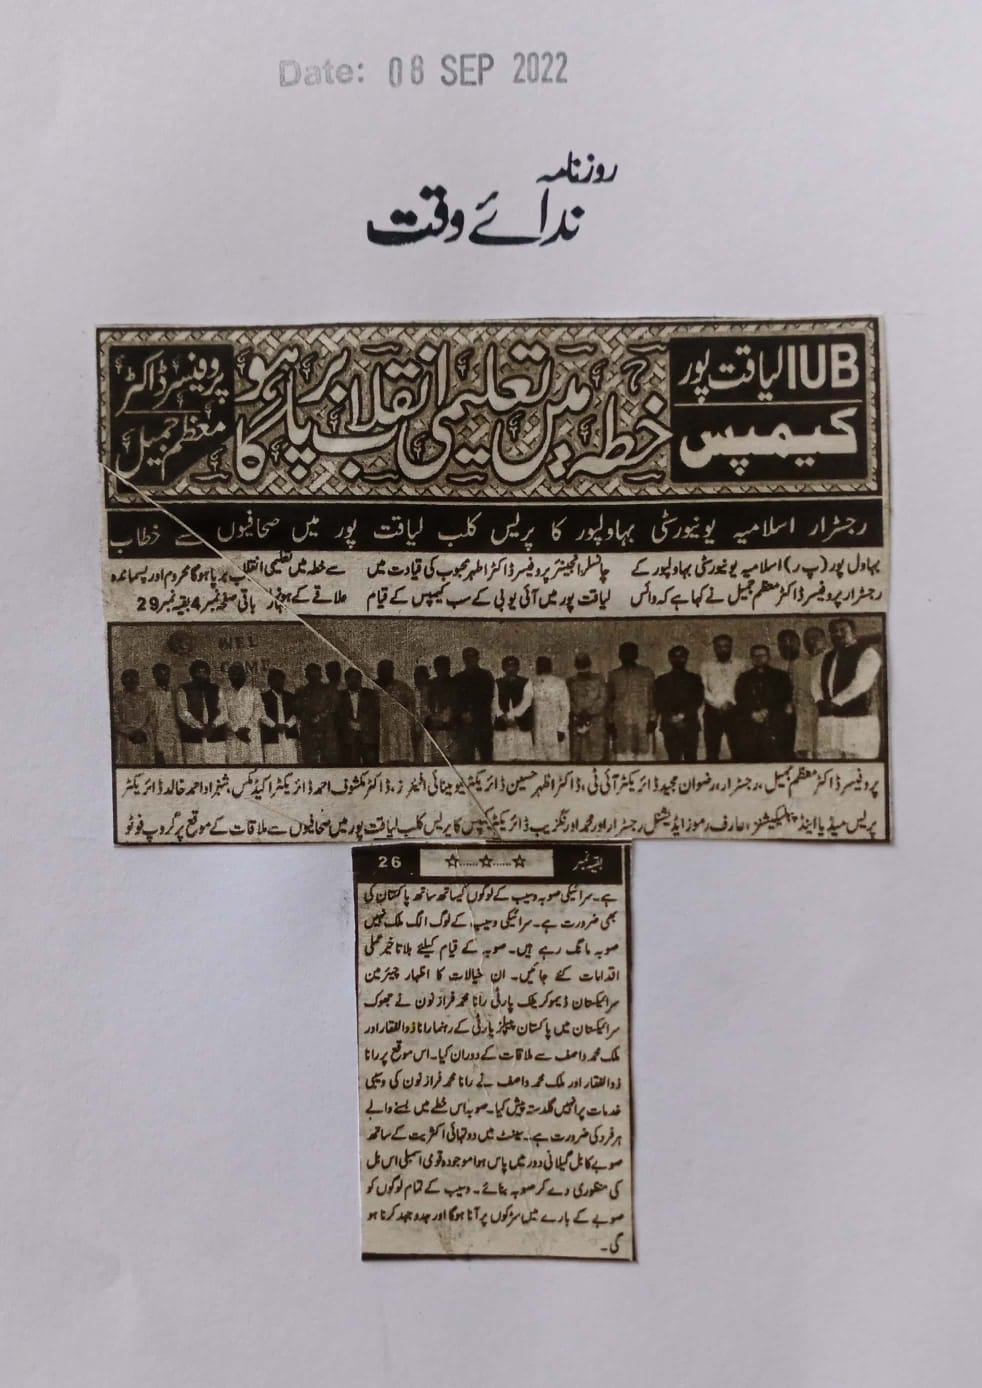 Date: 06 SEP 2022
روزنامہ
ندائے وقت
IUB لیاقت پور
کیمپس
خطہ میں تعلیمی انقلاب برپا ہو گا
پروفیسر ڈاکٹر
معظم جمیل
رجسٹرار اسلامیہ یونیورسٹی بہاولپور کا پریس کلب لیاقت پور میں صحافیوں سے خطاب
بہاول پور (پ ر) اسلامیہ یونیورسٹی بہاولپور کے
رجسٹرار پروفیسر ڈاکٹر معظم جمیل نے کہا ہے کہ وائس
چانسلر انجینئر پروفیسر ڈاکٹر اطہر محبوب کی قیادت میں
لیاقت پور میں آئی یو بی کے سب کیمپس کے قیام
سے خطہ میں تعلیمی انقلاب برپا ہو گا محروم اور پسماندہ
علاقے کے ہونہار باقی صفحہ نمبر 4 بقیہ نمبر 29
WEL
COME
پروفیسر ڈاکٹر معظم جمیل، رجسٹرار، رضوان مجید ڈائریکٹر آئی ٹی، ڈاکٹر اظہر حسین ڈائریکٹر یومینائی افیئرز، ڈاکٹر مکشوف احمد ڈائریکٹر اکیڈمکس، شہزاد احمد خالد ڈائریکٹر
پریس میڈیا اینڈ پبلیکیشنز، عارف رموز ایڈیشنل رجسٹرار اور محمد اورنگزیب ڈائریکٹر کیمپس کا پریس کلب لیاقت پور میں صحافیوں سے ملاقات کے موقع پر گروپ فوٹو
بقیہ نمبر ☆.....☆.....☆ 26
ہے۔ سرائیکی صوبہ وسیب کے لوگوں کیساتھ ساتھ پاکستان کی
بھی ضرورت ہے۔ سرائیکی وسیب کے لوگ الگ ملک نہیں
صوبہ مانگ رہے ہیں۔ صوبہ کے قیام کیلئے بلاتاخیر عملی
اقدامات کئے جائیں۔ ان خیالات کا اظہار چیئرمین
سرائیکستان ڈیموکریٹک پارٹی رانا محمد فراز نون نے جھوک
سرائیکستان میں پاکستان پیپلز پارٹی کے رہنما رانا ذوالفقار اور
ملک محمد واصف سے ملاقات کے دوران کیا۔ اس موقع پر رانا
ذوالفقار اور ملک محمد واصف نے رانا محمد فراز نون کی وسیبی
خدمات پر انہیں گلدستہ پیش کیا۔ صوبہ اس خطے میں بسنے والے
ہر فرد کی ضرورت ہے۔ سینٹ میں دو تہائی اکثریت کے ساتھ
صوبے کا بل گیلانی دور میں پاس ہوا موجودہ قومی اسمبلی اس بل
کی منظوری دے کر صوبہ بنائے۔ وسیب کے تمام لوگوں کو
صوبے کے بارے میں سڑکوں پر آنا ہوگا اور جدوجہد کرنا ہو
گی۔